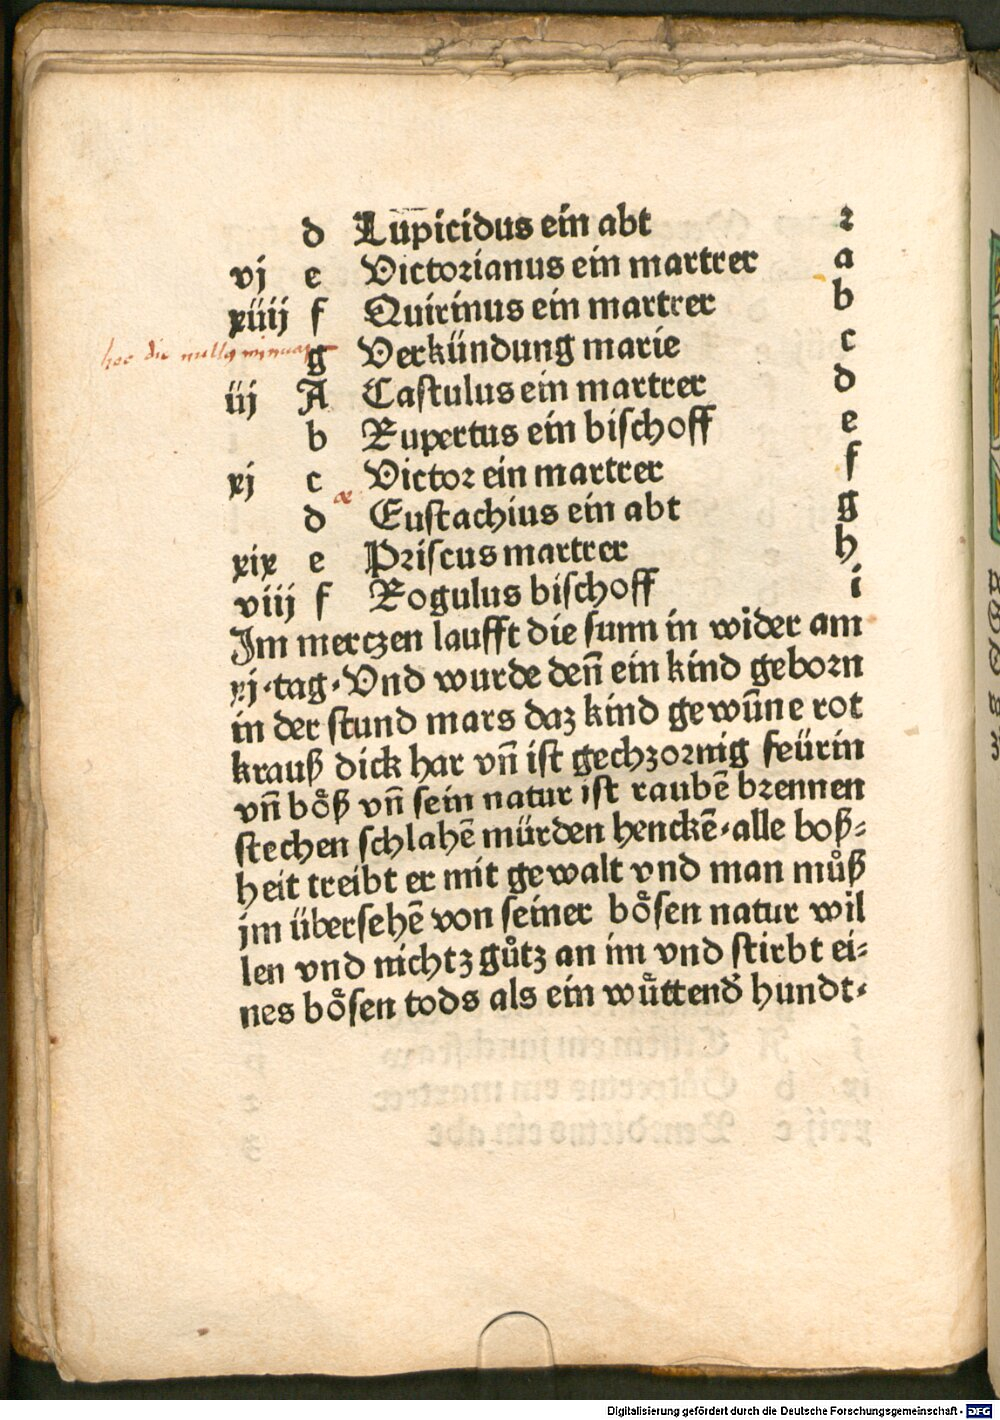 d Lupicidus ein abt ꝛ
vj e Victoꝛianus ein martrer a
xiiij f Quirinus ein martrer b
g Verkündung marie c
iij A Castulus ein martrer d
b Rupertus ein bischoff e
xj c Victoꝛ ein martrer f
d Eustachius ein abt g
xix e Priscus martrer h
viij f Rogulus bischoff i
Im mertzen laufft die sunn in wider am
xj·tag·Vnd wurde deñ ein kind geboꝛn
in der stund mars daz kind gewūne rot
krauß dick har vñ ist gechzoꝛnig feürin
vñ boͤß vñ sein natur ist raubē bꝛennen
stechen schlahē mürden henckē·alle boß⸗
heit treibt er mit gewalt vnd man muͦß
im übersehē von seiner boͤsen natur wil
len vnd nichtz guͦtz an im vnd stirbt ei⸗
nes boͤsen tods als ein wuͤttend̕ hundt·
Digitalisierung gefördert durch die Deutsche Forschungsgemeinschaft - DFG